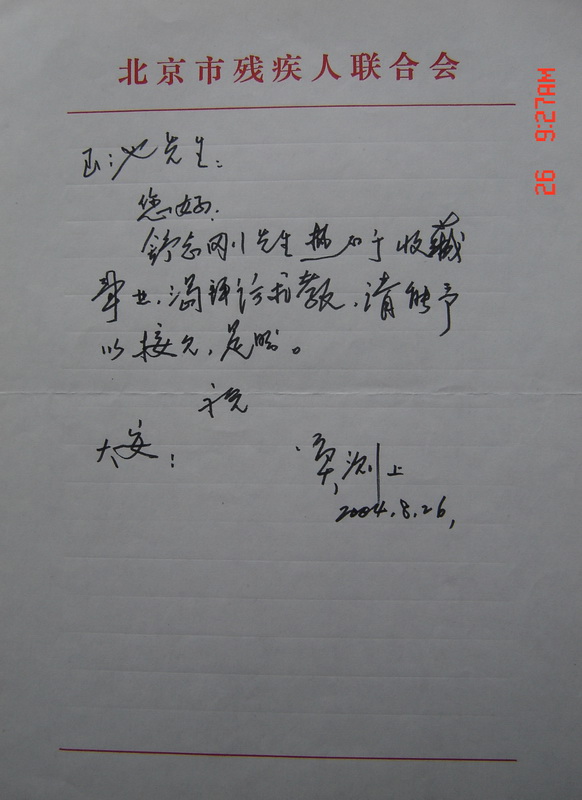 北京市残疾人联合会
先生:
您好.
舒志刚先生热心于收藏
事业，请能予
以接见，是盼。
祝
大安:
上
2004.8.26,
26 9:27AM